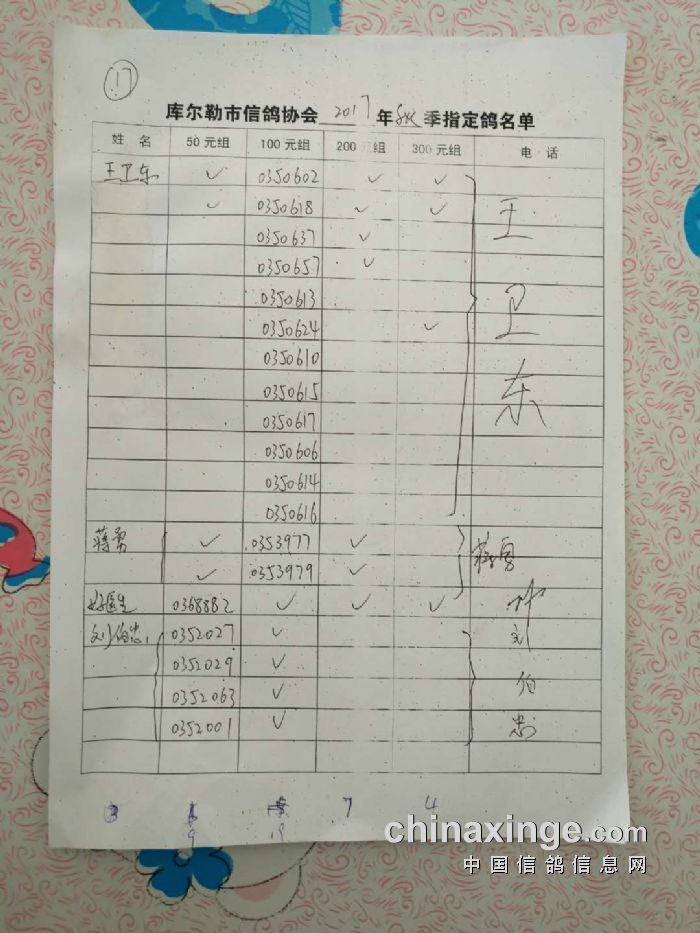 17
库尔勒市信鸽协会 2017 年 秋 季指定鸽名单
姓 名 50 元组 100 元组 200 元组 300 元组 电 话
王卫东 ✓ 0350602 ✓ ✓
✓ 0350618 ✓ ✓ 王
0350637 ✓
0350657 ✓
0350613
0350624 ✓ 卫
0350610
0350615 东
0350617
0350606
0350614
0350616
蒋勇 ✓ 0353977 ✓ 蒋勇
✓ 0353979 ✓
好医生 0368882 ✓ ✓ ✓
刘伯忠 0352027 ✓ 刘
0352029 ✓
0352063 ✓ 伯
0352001 ✓ 忠
7 4
9 19
chinaxinge.com
中国信鸽信息网